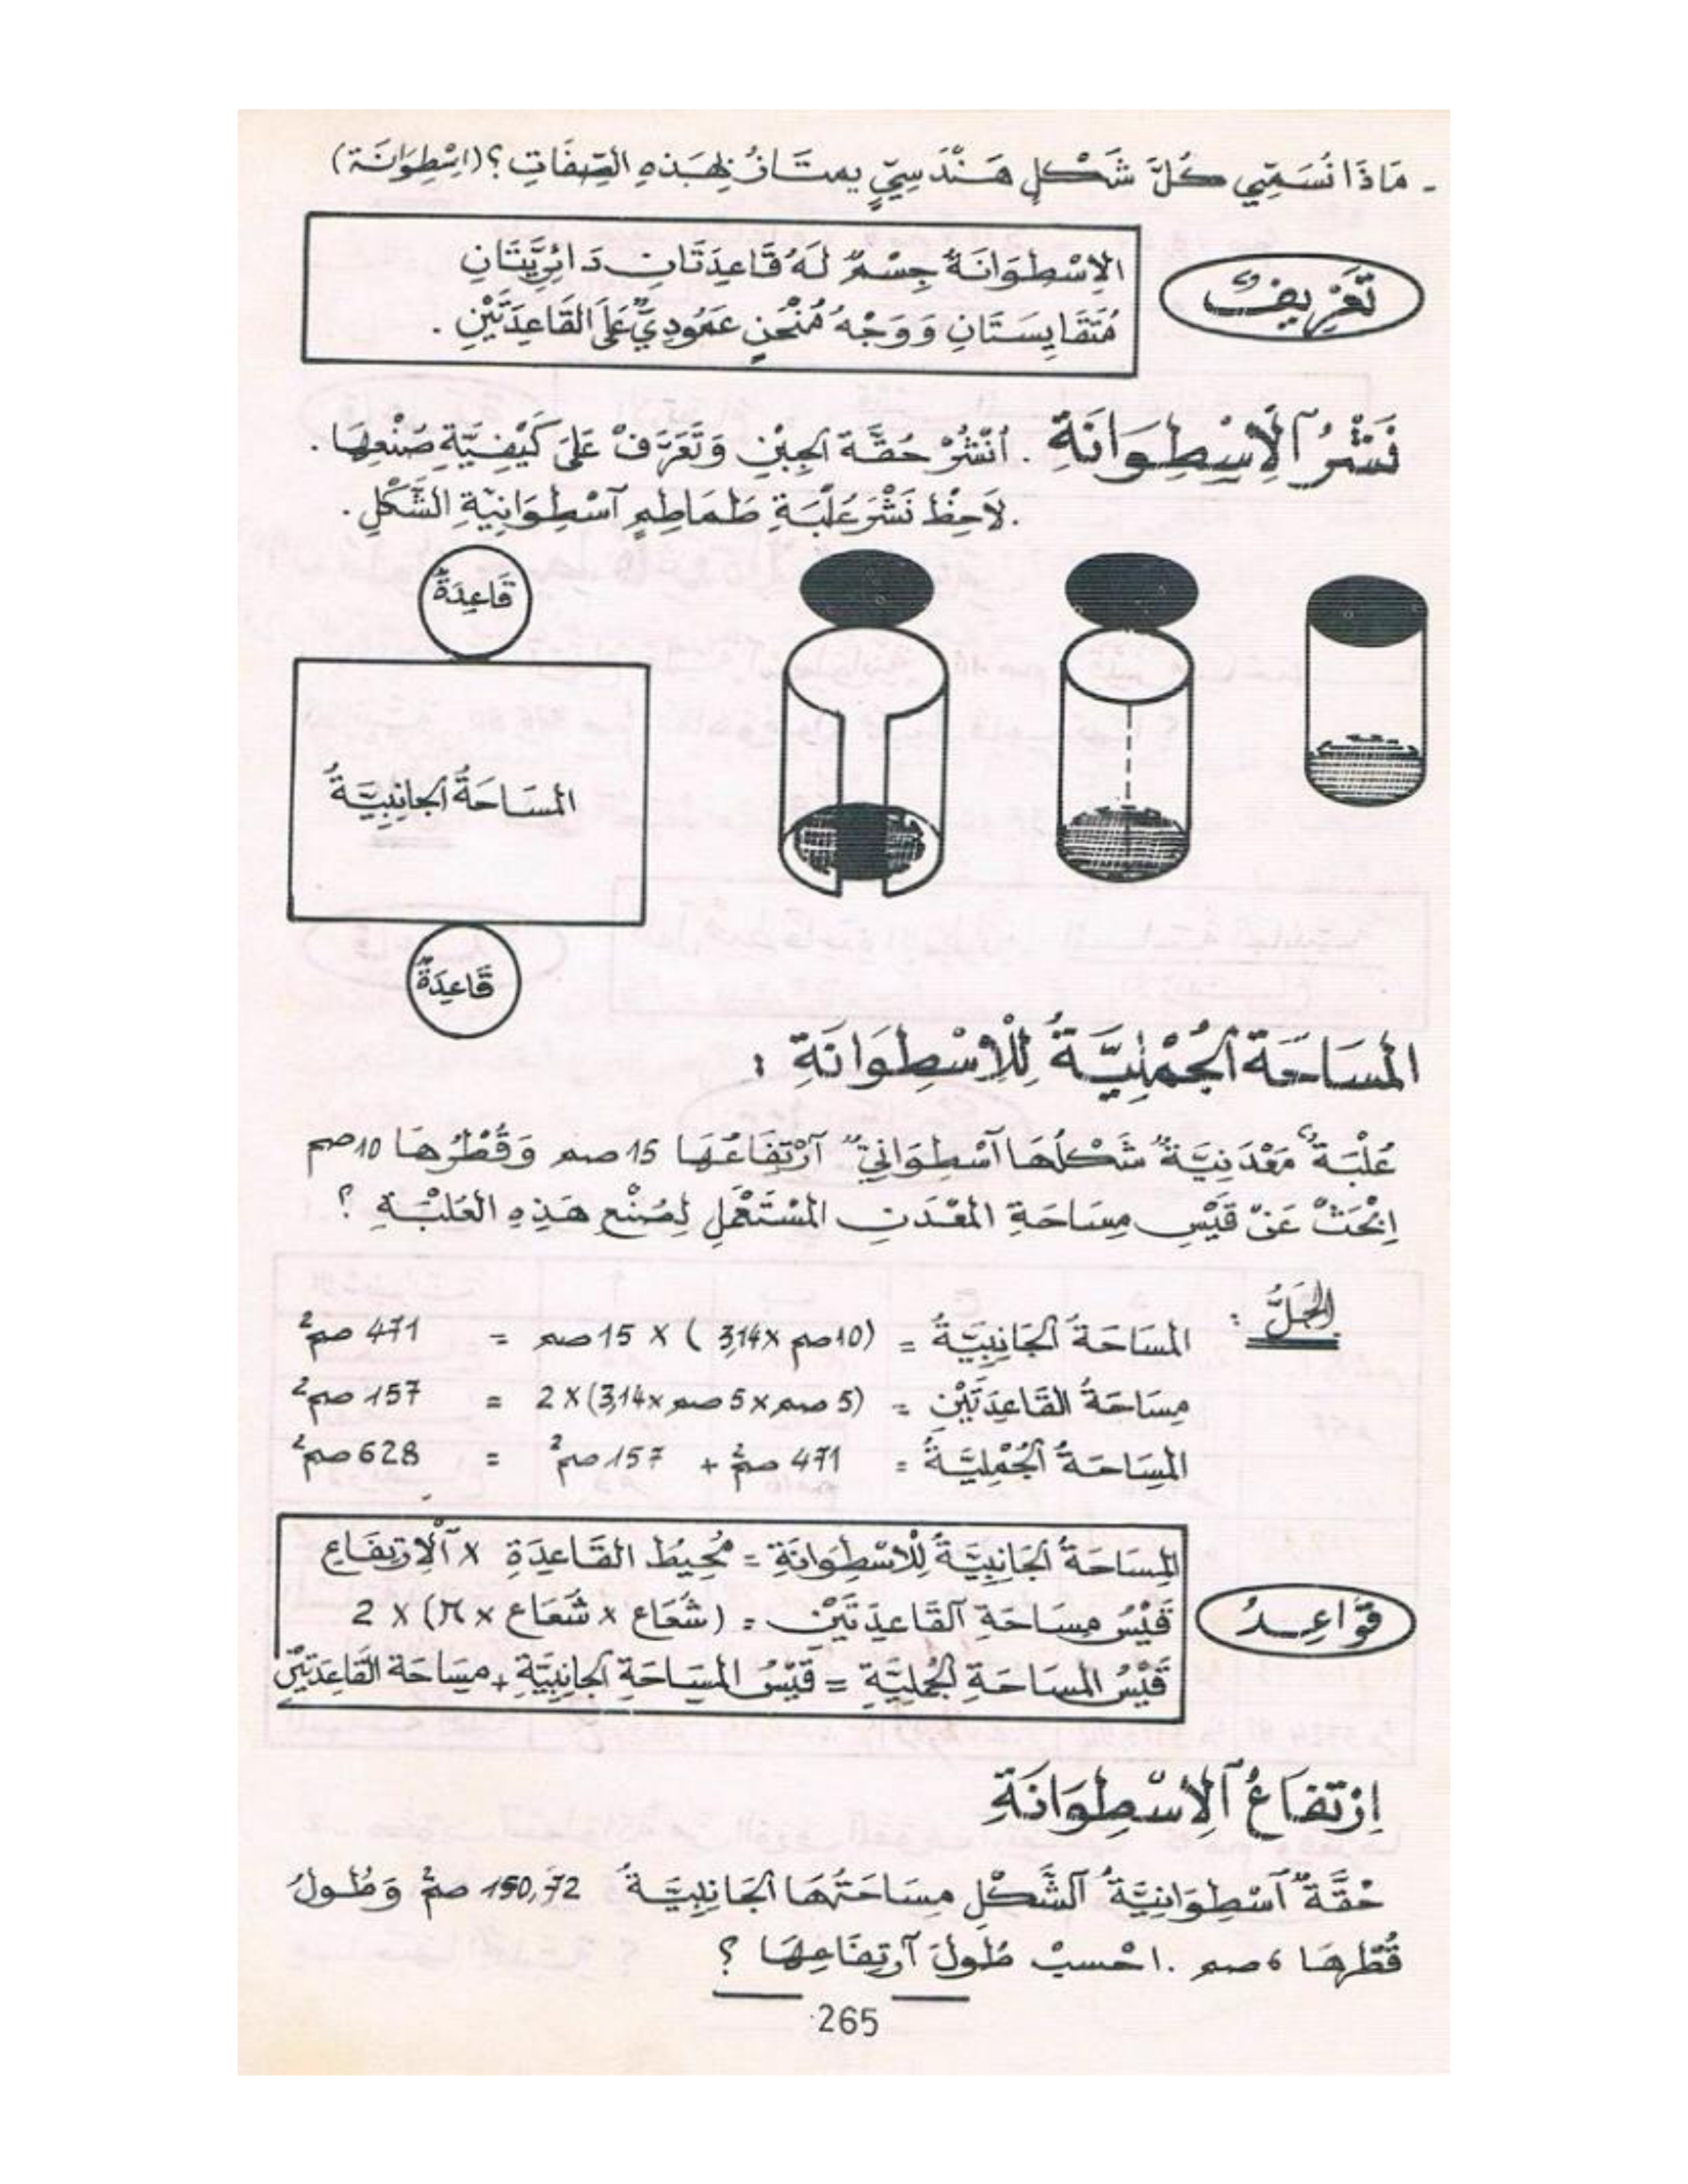 - مَاذَا نُسَمِّي كُلَّ شَكْلٍ هَنْدَسِيٍّ يمتَازُ بِهَذِهِ الصِّفَاتِ ؟ (اِسْطِوَانَة)
تَعْرِيفٌ
الإِسْطِوَانَةُ جِسْمٌ لَهُ قَاعِدَتَانِ دَائِرِيَّتَانِ
مُتَقَايِسَتَانِ وَوَجْهُ مُنْحَنٍ عَمُودِيٌّ عَلَى القَاعِدَتَيْنِ .
نَشْرُ ٱلْإِسْطِوَانَةِ . اُنْشُرْ حُقَّةَ الجِبْنِ وَتَعَرَّفْ عَلَى كَيْفِيَّةِ صُنْعِهَا .
. لَاحِظْ نَشْرَ عُلْبَةِ طَمَاطِمٍ ٱسْطِوَانِيَّةِ الشَّكْلِ .
قَاعِدَةٌ
المسَاحَةُ الجَانِبِيَّةُ
قَاعِدَةٌ
المسَاحَةُ الجُمْلِيَّةُ لِلْإسْطِوَانَةِ :
عُلْبَةٌ مَعْدَنِيَّةٌ شَكْلُهَا ٱسْطِوَانِيٌّ ٱرْتِفَاعُهَا 15 صم وَقُطْرُهَا 10 صم
اِبْحَثْ عَنْ قَيْسِ مِسَاحَةِ المَعْدَنِ المُسْتَعْمَلِ لِصُنْعِ هَذِهِ العُلْبَةِ ؟
الحَلُّ :
المِسَاحَةُ الجَانِبِيَّةُ = (10 صم × 3,14) × 15 صم = 471 صم²
مِسَاحَةُ القَاعِدَتَيْنِ = (5 صم × 5 صم × 3,14) × 2 = 157 صم²
المِسَاحَةُ الجُمْلِيَّةُ = 471 صم² + 157 صم² = 628 صم²
قَوَاعِدُ
المِسَاحَةُ الجَانِبِيَّةُ لِلْإسْطِوَانَةِ = مُحِيطُ القَاعِدَةِ × ٱلْإِرْتِفَاعِ
قَيْسُ مِسَاحَةِ ٱلقَاعِدَتَيْنِ = (شُعَاع × شُعَاع × π) × 2
قَيْسُ المِسَاحَةِ الجُمْلِيَّةِ = قَيْسُ المِسَاحَةِ الجَانِبِيَّةِ + مِسَاحَة القَاعِدَتَيْنِ
اِرْتِفَاعُ ٱلْإِسْطِوَانَةِ
حُقَّةٌ ٱسْطِوَانِيَّةُ ٱلشَّكْلِ مِسَاحَتُهَا الجَانِبِيَّةُ 150,72 صم² وَطُولُ
قُطْرِهَا 6 صم . اِحْسِبْ طُولَ ٱرْتِفَاعِهَا ؟
265